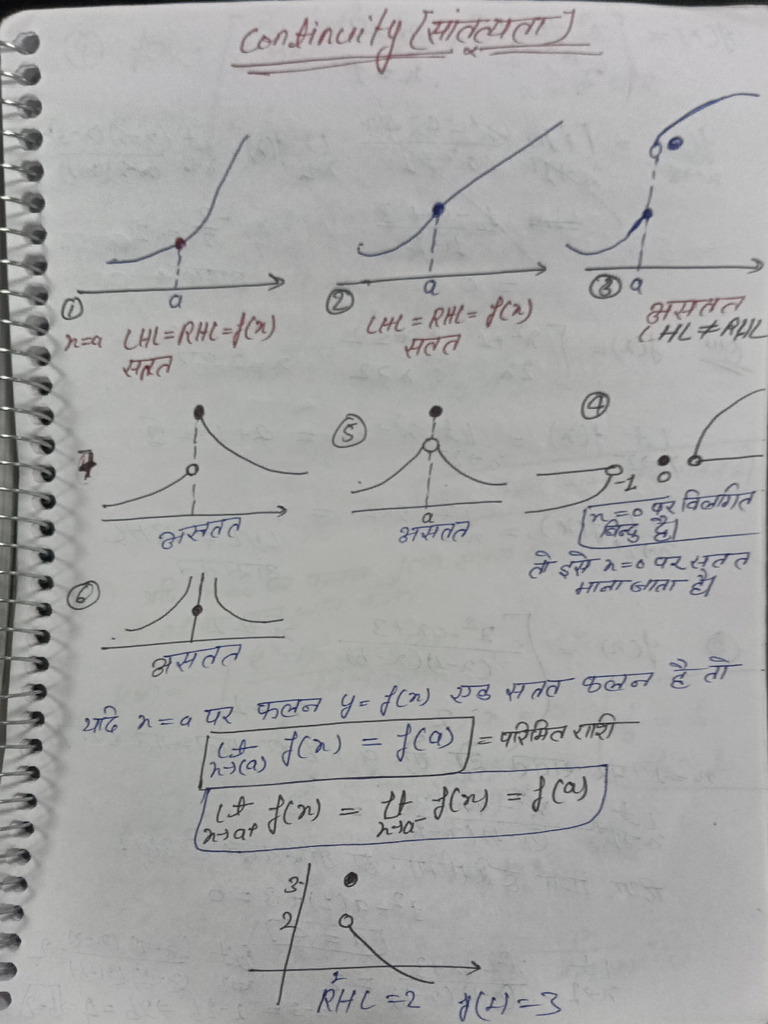 Continuity [सांतत्यता]
①
a
x=a LHL=RHL=f(x)
सतत
②
a
LHL=RHL=f(x)
सतत
③ a
असतत
LHL≠RHL
असतत
⑤
a
असतत
④
-1 0
x=0 पर विलगित
बिन्दु है।
तो इसे x=0 पर सतत
माना जाता है।
⑥
असतत
यदि x=a पर फलन y=f(x) एक सतत फलन है तो
Lt x→(a) f(x) = f(a) = परिमित राशी
Lt x→a+ f(x) = Lt x→a- f(x) = f(a)
3
2
1
RHL=2 f(1)=3